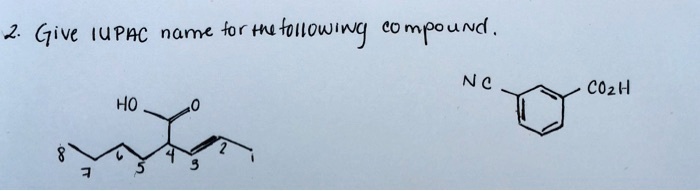 2. Give IUPAC name for the following compound.
NC CO2H
HO O
8 7 6 5 4 3 2 1